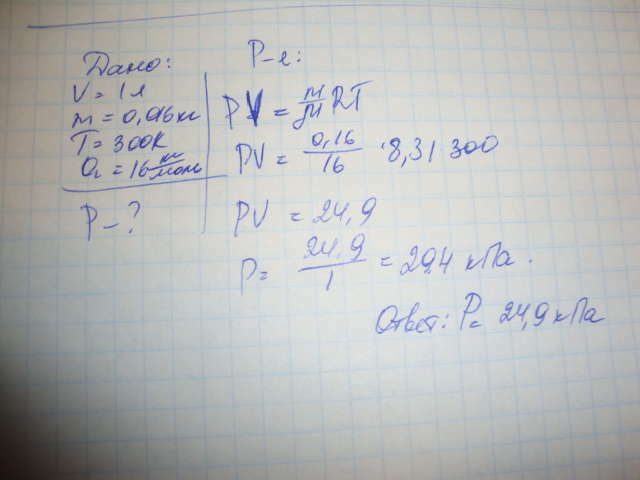 Дано:
V = 1 л
m = 0,016 кг
T = 300К
O₂ = 16 кг/моль
P – ?
Р-е:
PV = m/M RT
PV = 0,16/16 · 8,31 300
PV = 24,9
P = 24,9/1 = 29,4 кПа.
Ответ: P = 24,9 кПа